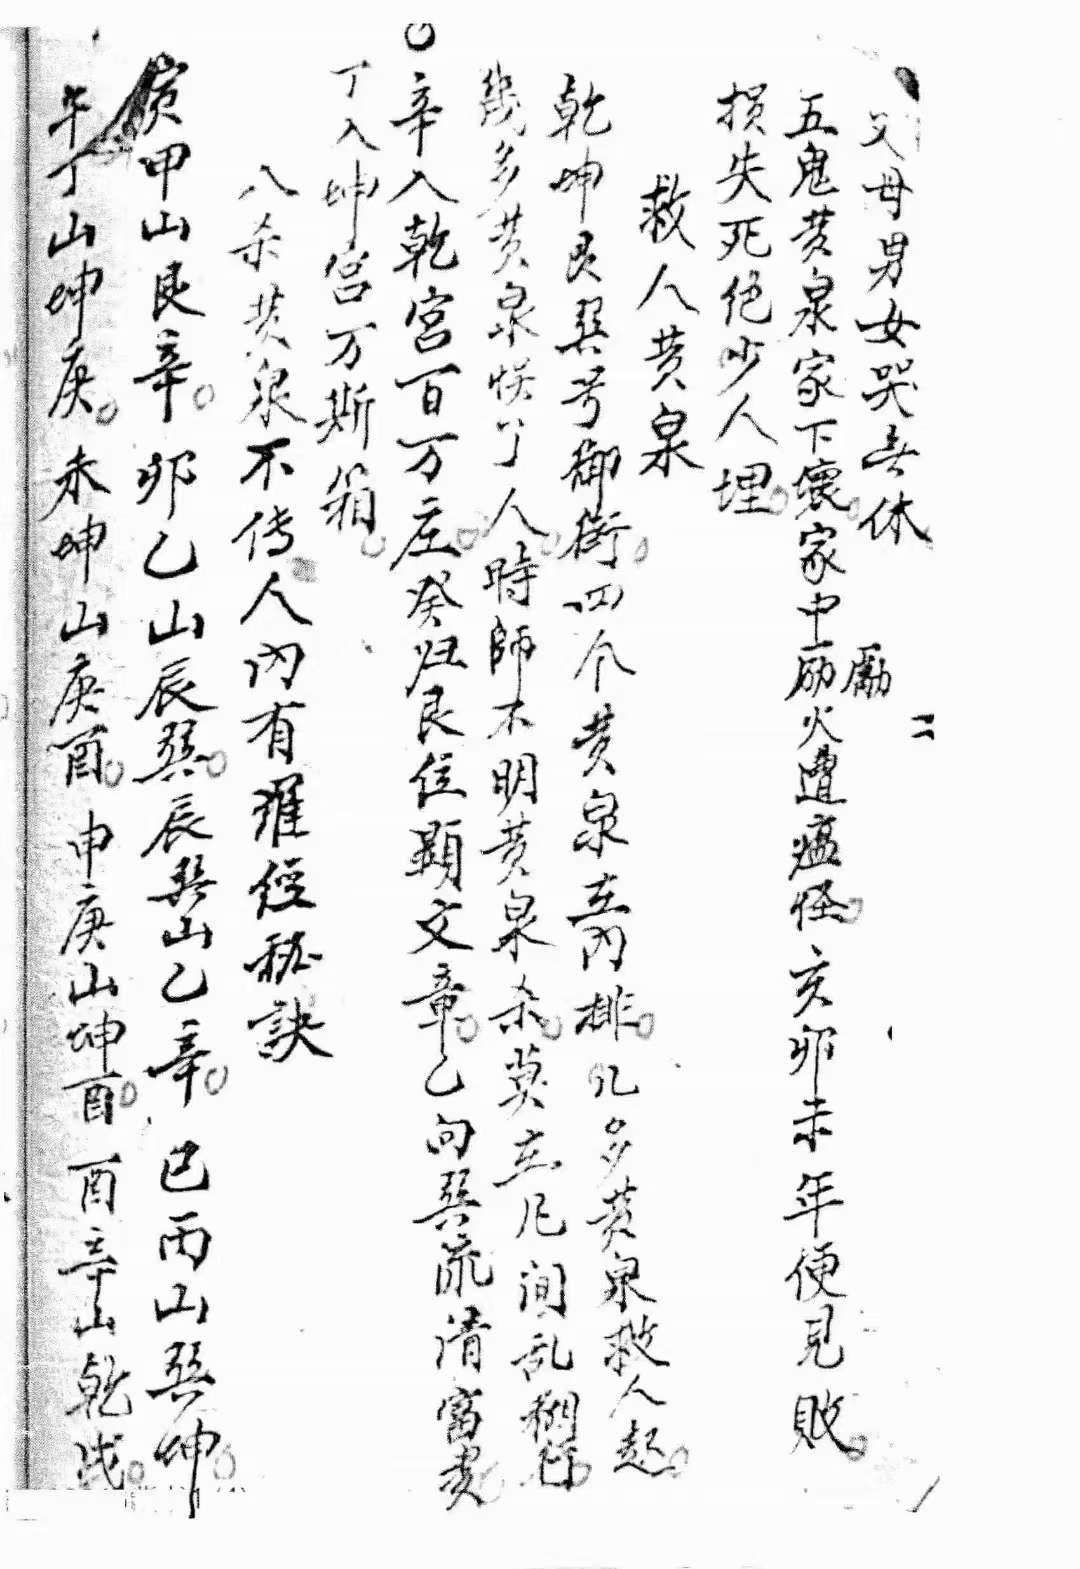 父母男女哭无休
五鬼黄泉家下壞家中励火遭瘟怪亥卯未年便見敗
勵
二
损失死绝少人埋
救人黄泉
乾坤艮巽号御街四个黄泉在内排几多黄泉救人起
幾多黄泉悮了人時師不明黄泉杀莫在凡间乱糊
辛入乾宫百万庄癸归艮位顕文章乙向巽流清富贵
丁入坤宫万斯箱
八杀黄泉不传人内有羅经秘訣
寅甲山艮辛卯乙山辰巽辰巽山乙辛巳丙山巽坤
午丁山坤庚未坤山庚酉申庚山坤酉酉辛山乾戌